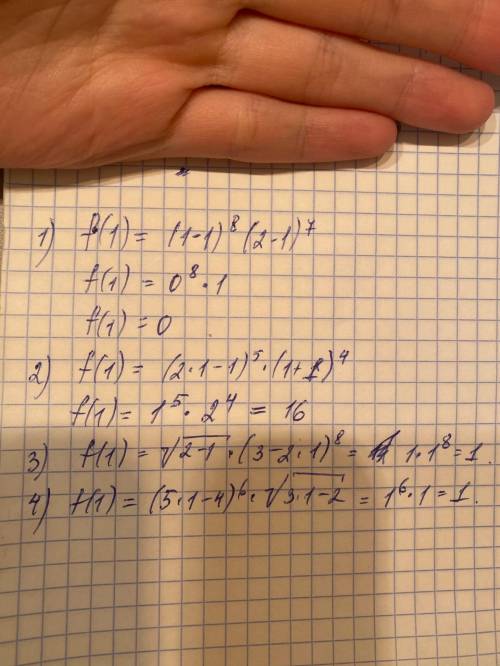 1) f(1) = (1-1)⁸ (2-1)⁷
f(1) = 0⁸ · 1
f(1) = 0
2) f(1) = (2·1-1)⁵ · (1+1)⁴
f(1) = 1⁵ · 2⁴ = 16
3) f(1) = √(2-1) · (3-2·1)⁸ = 1·1⁸ = 1.
4) f(1) = (5·1-4)⁶ · √(3·1-2) = 1⁶ · 1 = 1.